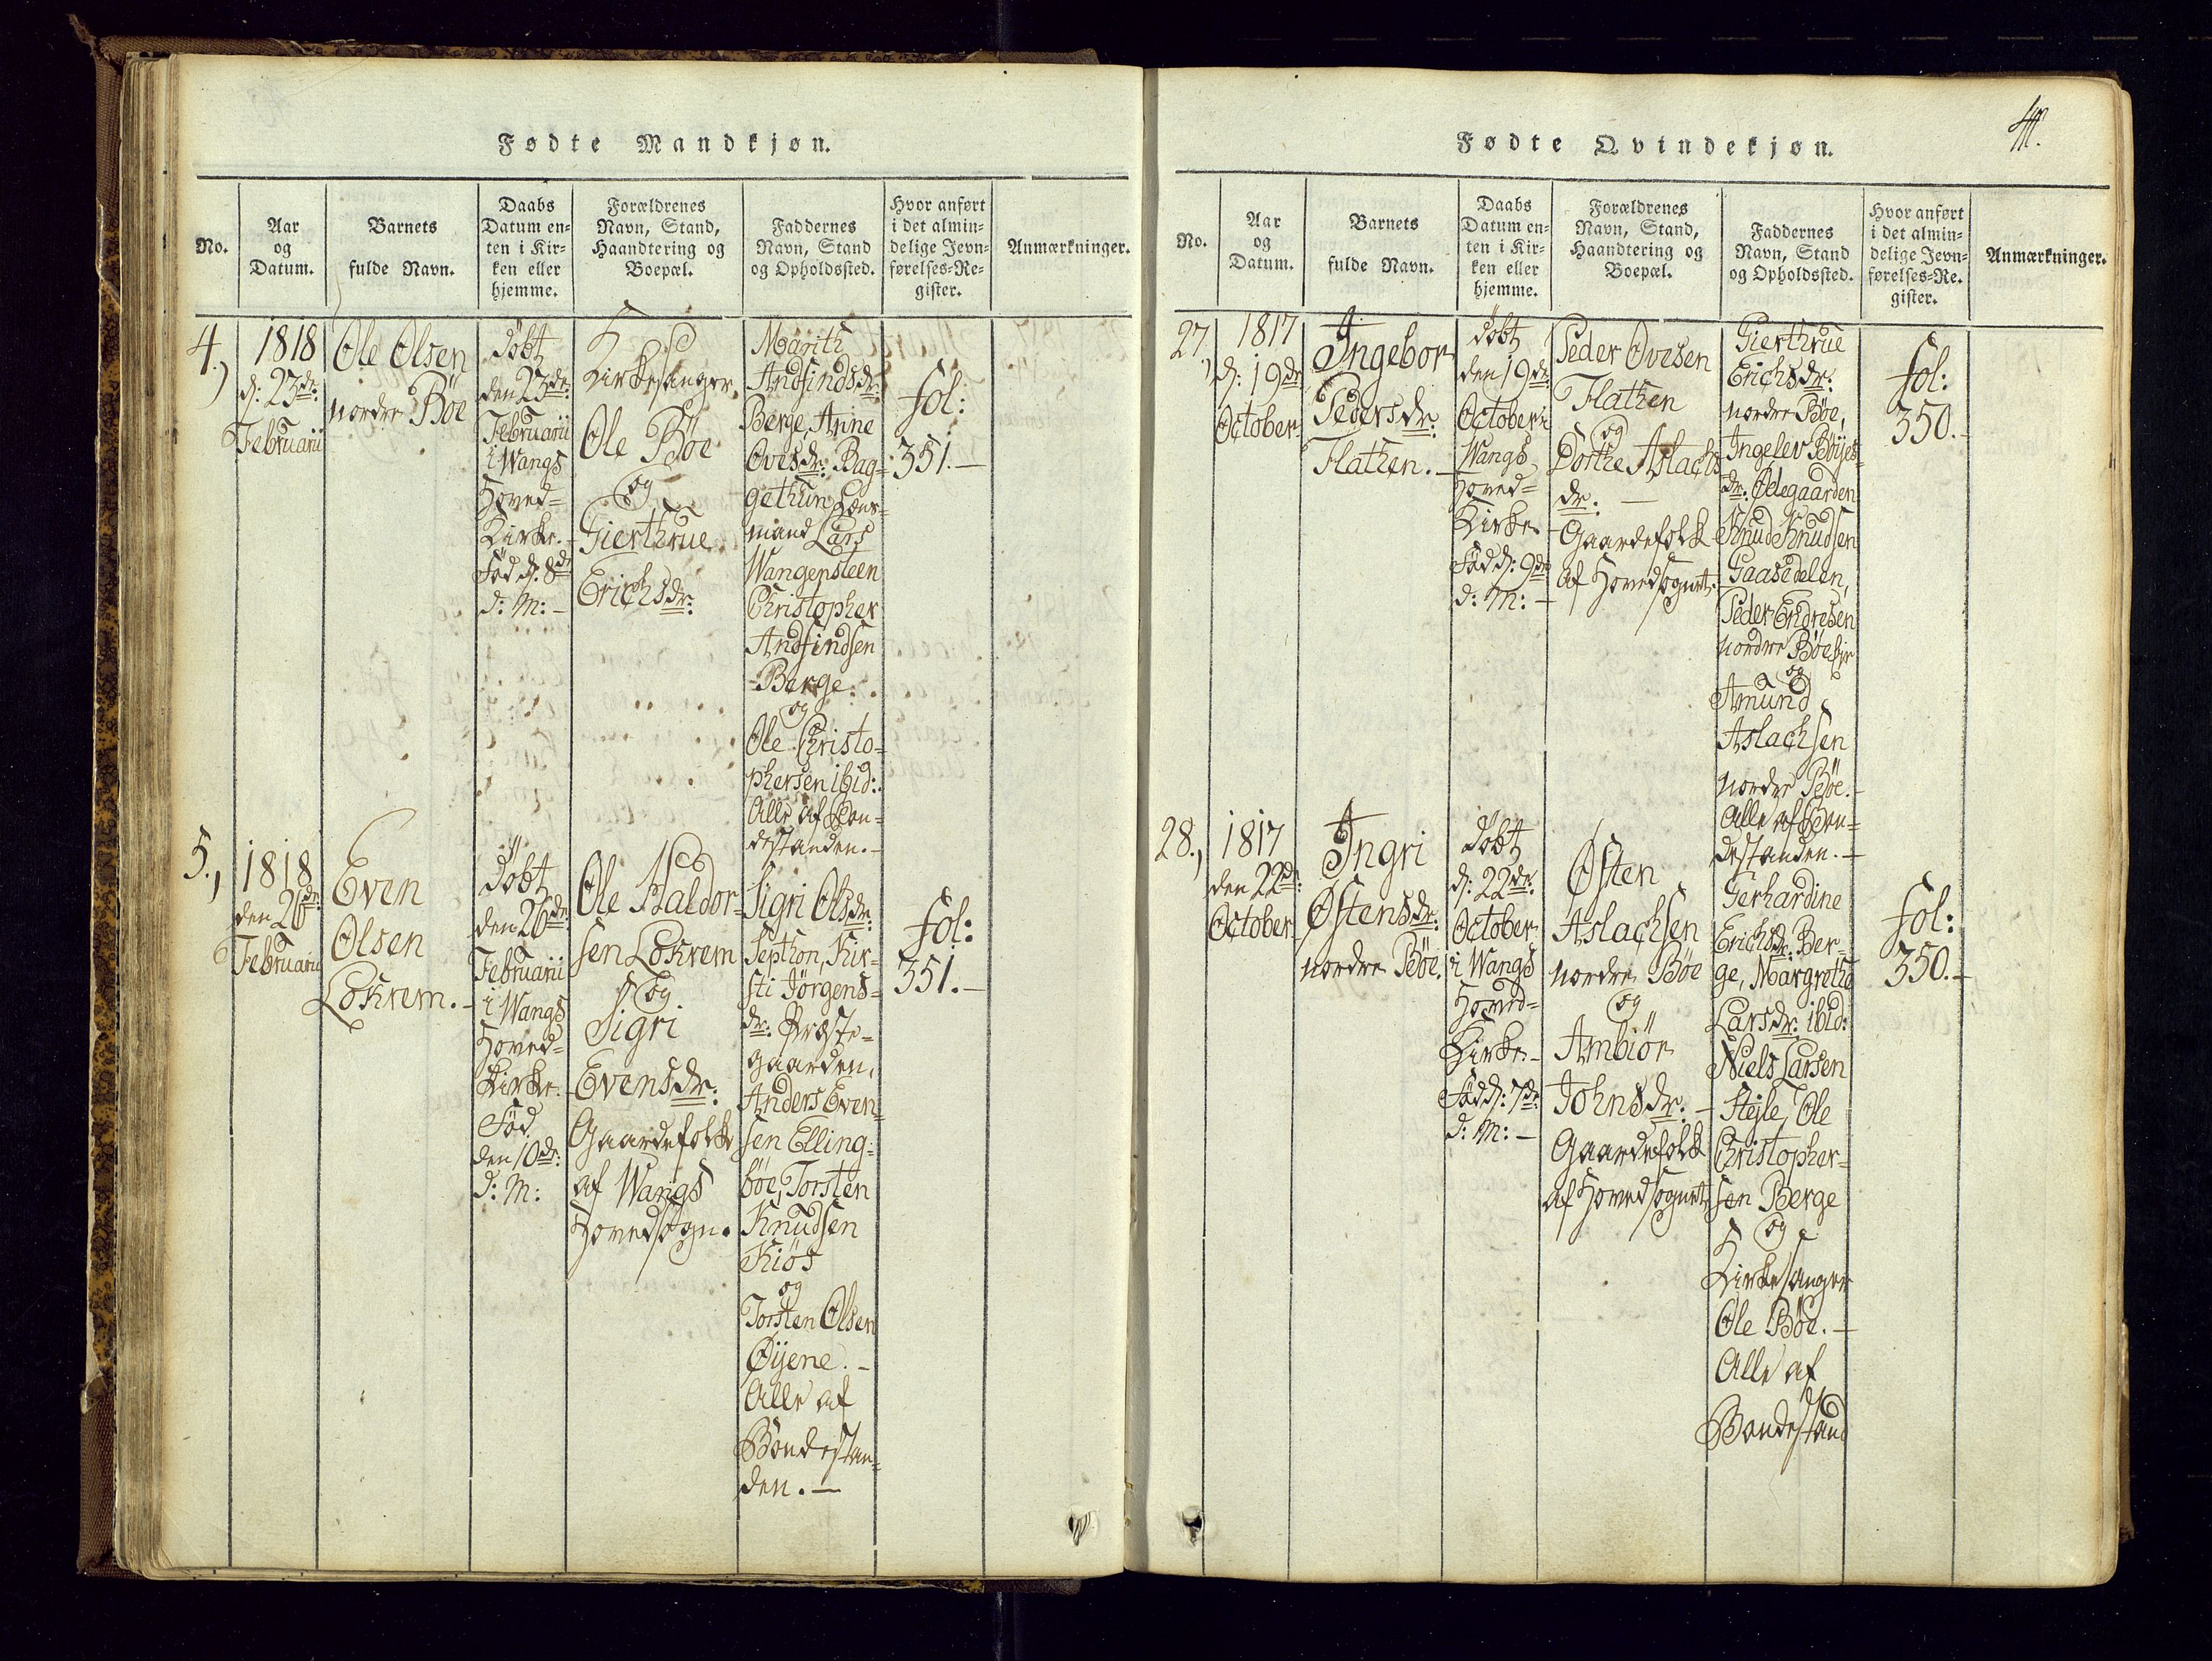 Fødte Mandkjøn.
No.
Aar
og
Datum.
Barnets
fulde Navn.
Daabs
Datum en-
ten i Kir-
ken eller
hjemme.
Forældrenes
Navn, Stand,
Haandtering og
Boepæl.
Faddernes
Navn, Stand
og Opholdssted.
Hvor anført
i det almin-
delige Jevn-
førelses-Re-
gister.
Anmærkninger.
4.)
1818
d: 23de:
Februarii
Ole Olsen
nordre Bøe
døbt
den 23de:
Februarii
i Wangs
Hoved=
Kirke.
Fød d: 8de
d: M: -
Kirkesanger
Ole Bøe
og
Gierthrue
Erichsdr:
Marith
Andfindsdr:
Berge, Anne
Ovesdr: Bag=
gethun, Lens-
mand Lars
Wangensteen
Christopher
Andfindsen
Berge.
og
Ole Christo=
phersen ibid:
Alle af Bon=
destanden. -
fol:
351. -
5.,
1818
den 26de:
Februarii
Even
Olsen
Lokrem. -
døbt
den 26de:
Februarii
i Wangs
Hoved=
Kirke.
Fød
den 10de:
d: M:
Ole Haldor=
sen Lokrem
og
Sigri
Evensdr:
Gaardefolk
af Wangs
Hovedsogn.
Sigri Olsdr:
Sethon, Kir-
sti Jørgens=
dr: Præste=
gaarden,
Anders Even=
sen Elling:
bøe, Torsten
Knudsen
Kiøs
og
Torsten Olsen
Øijene. -
Alle af
Bondestan=
den. -
fol:
351. -
Fødte Qvindekjøn.
No.
Aar
og
Datum.
Barnets
fulde Navn.
Daabs
Datum en-
ten i Kir-
ken eller
hjemme.
Forældrenes
Navn, Stand,
Haandtering og
Boepæl.
Faddernes
Navn, Stand
og Opholdssted.
Hvor anført
i det almin-
delige Jevn-
førelses-Re-
gister.
Anmærkninger.
27.,
1817
d: 19de
October
Ingebor
Pedersdr:
Flathen. -
døbt
den 19de:
October i
Wangs
Hoved=
Kirke. -
Fød d: 9de
d: M: -
Peder Ovesen
Flathen
og
Dorthe Aslachs
dr: -
Gaardefolk
af Hovedsognet.
Gierthrue
Erichsdr:
nordre Bøe,
Ingelev Bøijes=
dr: Ødegaarden
Knud Knudsen
Gaasedelen,
Peder Endresen
nordre Bøe
og
Amund
Aslachsen
nordre Bøe. -
Alle af Bon=
destanden. -
fol:
350. -
28.,
1817
den 22de:
October
Ingri
Østensdr:
nordre Bøe.
døbt
d: 22de:
October
i Wangs
Hoved=
Kirke. -
Fød d: 7de:
d: M: -
Østen
Aslachsen
nordre Bøe
og
Ambiør
Johnsdr: -
Gaardefolk
af Hovedsognet
Gerhardine
Erichsdr: Ber=
ge, Margrethe
Larsdr: ibid:
Niels Larsen
Stejle, Ole
Christopher=
sen Berge
og
Kirkesanger
Ole Bøe. -
Alle af
Bondestand
fol:
350. -